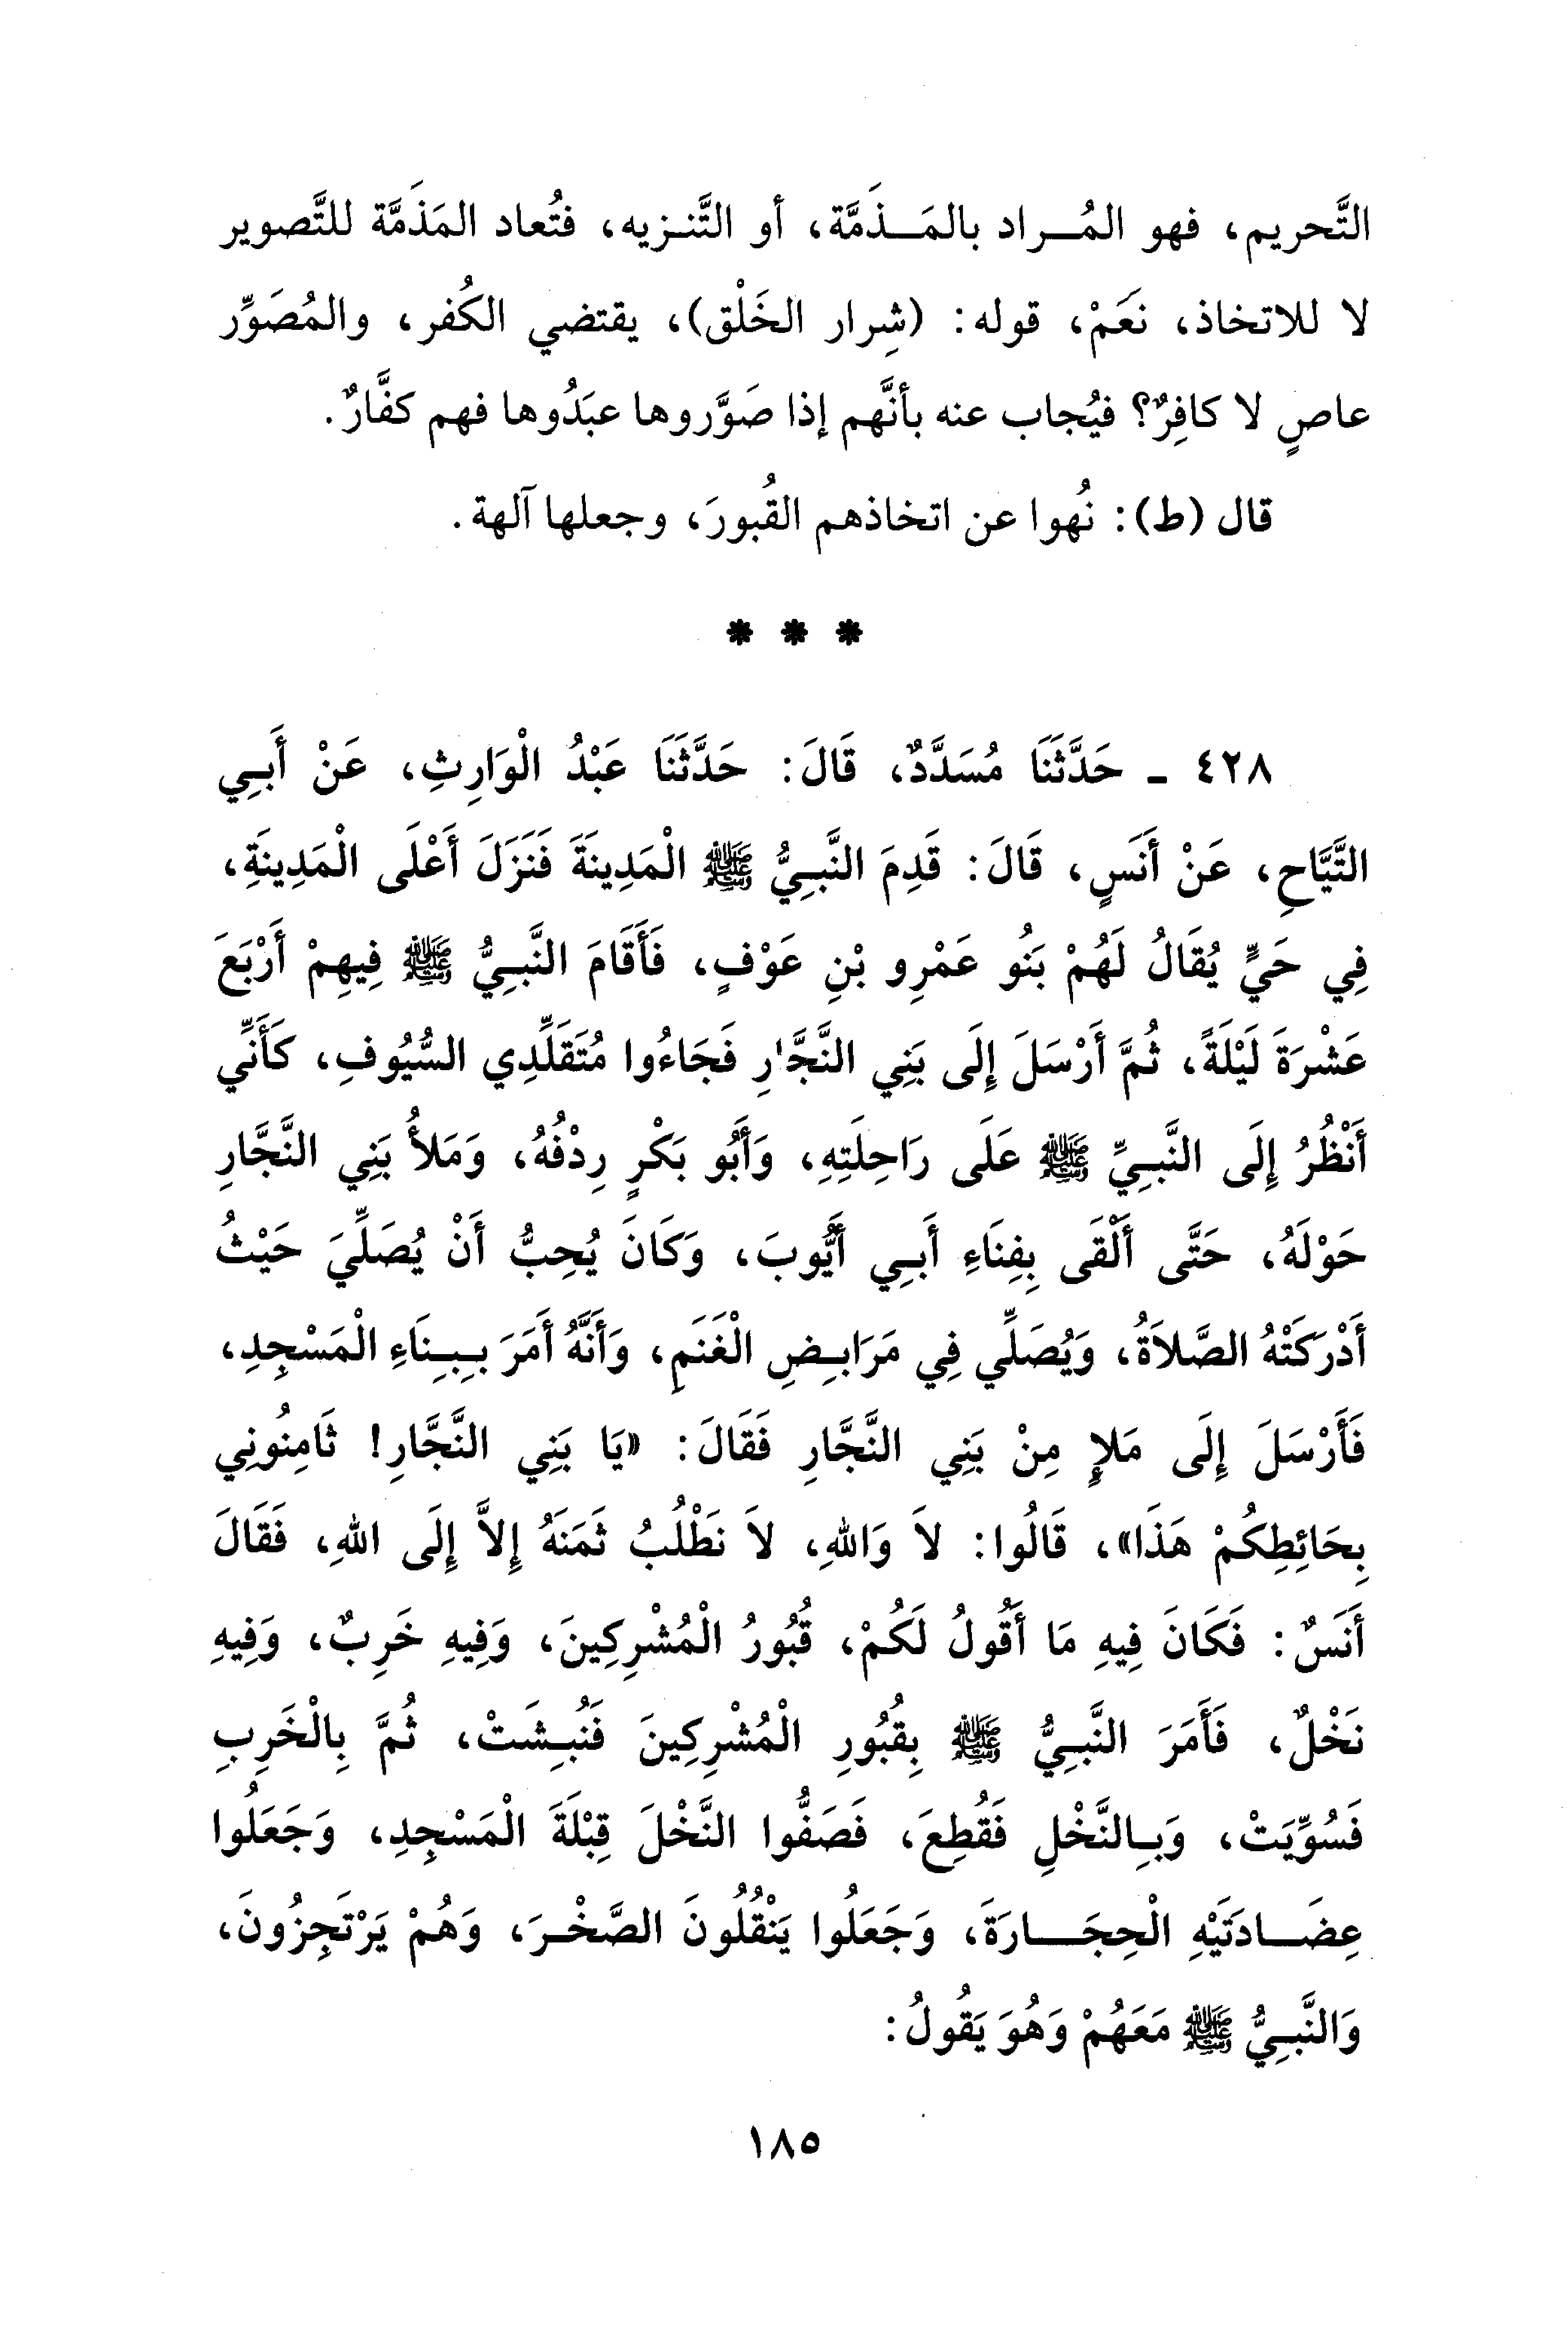 التَّحريم، فهو المُـراد بالمَـذَمَّة، أو التَّنـزيه، فتُعاد المَذَمَّة للتَّصوير
لا للاتخاذ، نَعَمْ، قوله: (شِرار الخَلْق)، يقتضي الكُفر، والمُصَوِّر
عاصٍ لا كافِرٌ؟ فيُجاب عنه بأنَّهم إذا صَوَّروها عبَدُوها فهم كفَّارٌ.
قال (ط): نُهوا عن اتخاذهم القُبورَ، وجعلها آلهة.
* * *
٤٢٨ - حَدَّثَنَا مُسَدَّدٌ، قَالَ: حَدَّثَنَا عَبْدُ الْوَارِثِ، عَنْ أَبِي
التَّيَّاحِ، عَنْ أَنَسٍ، قَالَ: قَدِمَ النَّبِيُّ ﷺ الْمَدِينَةَ فَنَزَلَ أَعْلَى الْمَدِينَةِ،
فِي حَيٍّ يُقَالُ لَهُمْ بَنُو عَمْرِو بْنِ عَوْفٍ، فَأَقَامَ النَّبِيُّ ﷺ فِيهِمْ أَرْبَعَ
عَشْرَةَ لَيْلَةً، ثُمَّ أَرْسَلَ إِلَى بَنِي النَّجَّارِ فَجَاءُوا مُتَقَلِّدِي السُّيُوفِ، كَأَنِّي
أَنْظُرُ إِلَى النَّبِيِّ ﷺ عَلَى رَاحِلَتِهِ، وَأَبُو بَكْرٍ رِدْفُهُ، وَمَلأُ بَنِي النَّجَّارِ
حَوْلَهُ، حَتَّى أَلْقَى بِفِنَاءِ أَبِي أَيُّوبَ، وَكَانَ يُحِبُّ أَنْ يُصَلِّيَ حَيْثُ
أَدْرَكَتْهُ الصَّلاَةُ، وَيُصَلِّي فِي مَرَابِضِ الْغَنَمِ، وَأَنَّهُ أَمَرَ بِبِنَاءِ الْمَسْجِدِ،
فَأَرْسَلَ إِلَى مَلإٍ مِنْ بَنِي النَّجَّارِ فَقَالَ: «يَا بَنِي النَّجَّارِ! ثَامِنُونِي
بِحَائِطِكُمْ هَذَا»، قَالُوا: لاَ وَاللهِ، لاَ نَطْلُبُ ثَمَنَهُ إِلاَّ إِلَى اللهِ، فَقَالَ
أَنَسٌ: فَكَانَ فِيهِ مَا أَقُولُ لَكُمْ، قُبُورُ الْمُشْرِكِينَ، وَفِيهِ خَرِبٌ، وَفِيهِ
نَخْلٌ، فَأَمَرَ النَّبِيُّ ﷺ بِقُبُورِ الْمُشْرِكِينَ فَنُبِشَتْ، ثُمَّ بِالْخَرِبِ
فَسُوِّيَتْ، وَبِالنَّخْلِ فَقُطِعَ، فَصَفُّوا النَّخْلَ قِبْلَةَ الْمَسْجِدِ، وَجَعَلُوا
عِضَـادَتَيْهِ الْحِجَـارَةَ، وَجَعَلُوا يَنْقُلُونَ الصَّخْرَ، وَهُمْ يَرْتَجِزُونَ،
وَالنَّبِيُّ ﷺ مَعَهُمْ وَهُوَ يَقُولُ:
١٨٥